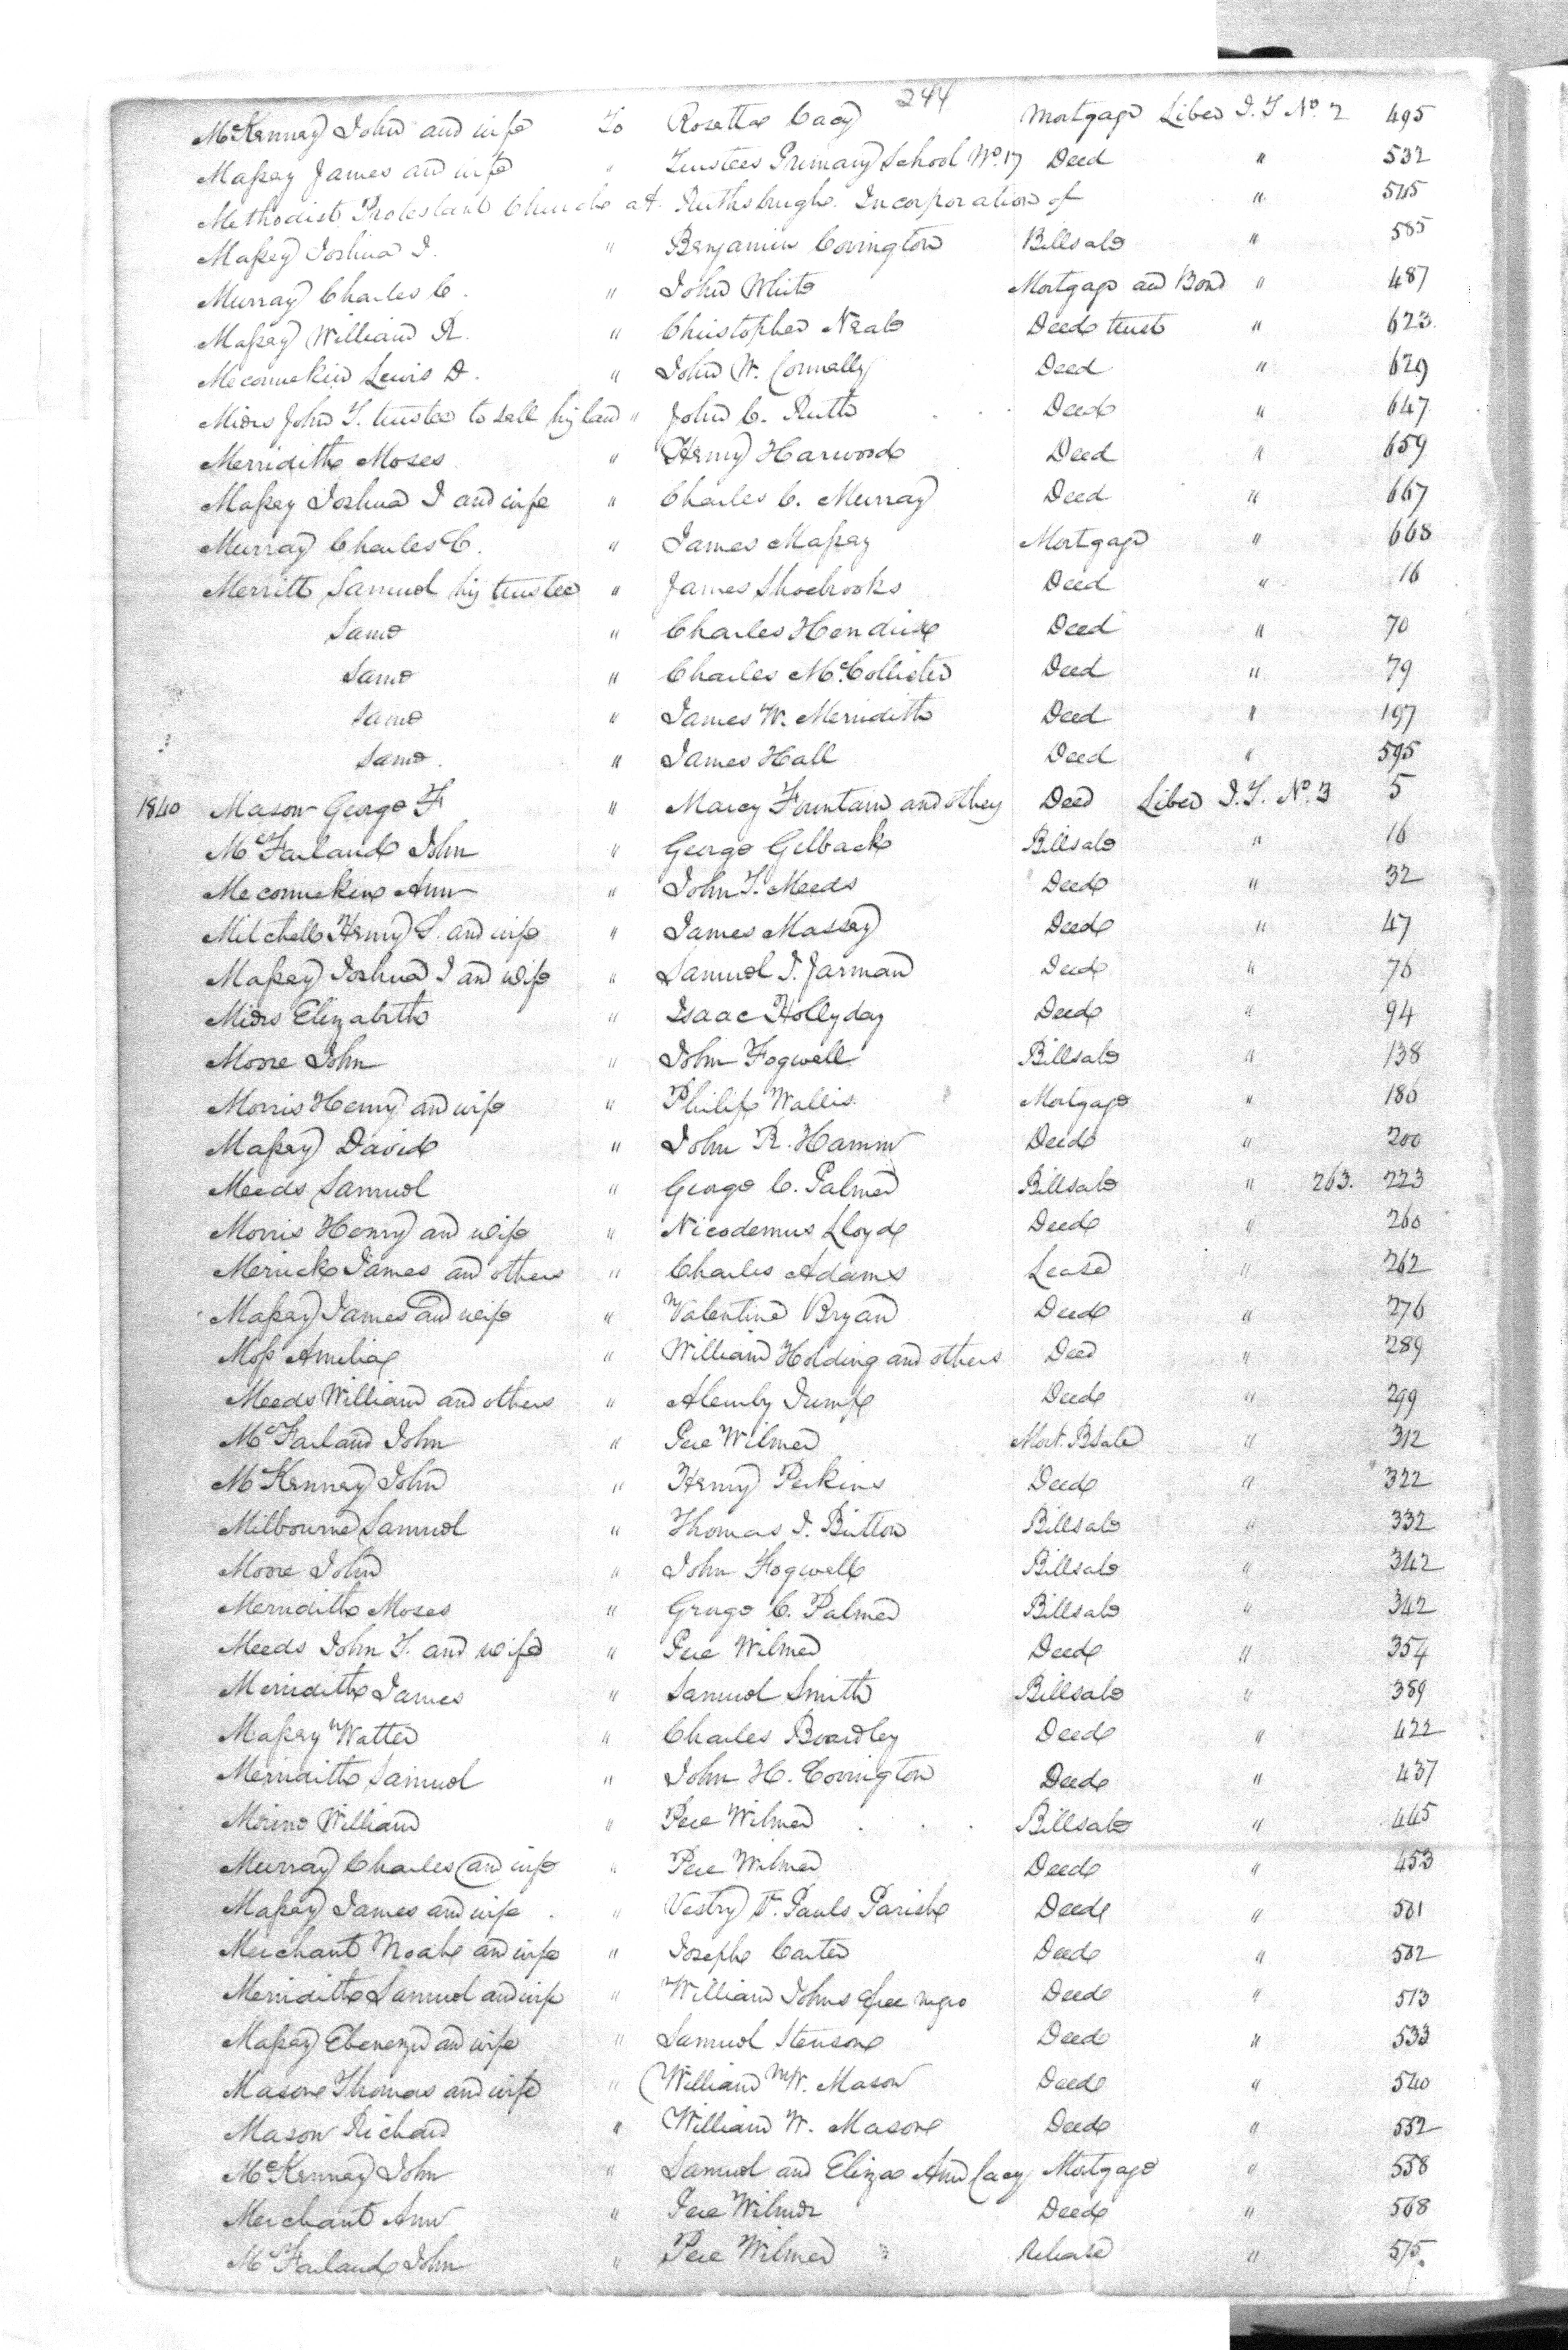 244
McKenney John and wife To Rosetta Cacy Mortgage Liber J.T No. 2 495
Massey James and wife " Trustees Primary School No. 17 Deed " 532
Methodist Protestant Church at Ruthsburgh Incorporation of " 545
Massey Joshua J. " Benjamin Covington Billsale " 585
Murray Charles C. " John White Mortgage and Bond " 487
Massey William R. " Christopher Neale Deed trust " 623
Meconnekin Lewis D. " John W. Connelly Deed " 629
Miers John T. trustee to sell his land " John C. Ruth Deed " 647
Merridith Moses " Henry Harwood Deed " 659
Massey Joshua J and wife " Charles C. Murray Deed " 667
Murray Charles C. " James Massey Mortgage " 668
Merritt Samuel his trustee " James Shoebrooks Deed " 16
Same " Charles Hendrix Deed " 70
Same " Charles McCollister Deed " 79
Same " James W. Merridith Deed " 197
Same " James Hall Deed " 595
1840 Mason George F " Marcy Fountain and others Deed Liber J.T. No. 3 5
McFarland John " George Gelback Billsale " 16
Meconnekin Ann " John T. Meeds Deed " 32
Mitchell Henry S. and wife " James Massey Deed " 47
Massey Joshua J and wife " Samuel T. Jarman Deed " 76
Miers Elizabeth " Isaac Hollyday Deed " 94
Moore John " John Fogwell Billsale " 138
Morris Henry and wife " Philip Wallis Mortgage " 186
Massey David " John R. Hamm Deed " 200
Meeds Samuel " George C. Palmer Billsale " 263. 223
Morris Henry and wife " Nicodemus Lloyd Deed " 260
Merrick James and others " Charles Adams Lease " 262
Massey James and wife " Valentine Bryan Deed " 276
Moss Amelia " William Holding and others Deed " 289
Meeds William and others " Alemby Jump Deed " 299
McFarland John " Pere Wilmer Mort. BSale " 312
McKenney John " Henry Perkins Deed " 322
Milbourne Samuel " Thomas J. Bitton Billsale " 332
Moore John " John Fogwell Billsale " 342
Merridith Moses " George C. Palmer Billsale " 342
Meeds John T. and wife " Pere Wilmer Deed " 354
Merridith James " Samuel Smith Billsale " 389
Massey Watter " Charles Boardley Deed " 422
Merridith Samuel " John H. Covington Deed " 437
William " Pere Wilmer Billsale " 445
Murray Charles and wife " Pere Wilmer Deed " 453
Massey James and wife " Vestry St. Pauls Parish Deed " 501
Merchant Noah and wife " Joseph Carter Deed " 502
Merridith Samuel and wife " William Johns free negro Deed " 513
Massey Ebenezer and wife " Samuel Stenson Deed " 533
Mason Thomas and wife " William W. Mason Deed " 540
Mason Richard " William W. Mason Deed " 552
McKenney John " Samuel and Eliza Ann Cacy Mortgage " 558
Merchant Ann " Pere Wilmer Deed " 568
McFarland John " Pere Wilmer Release " 575.